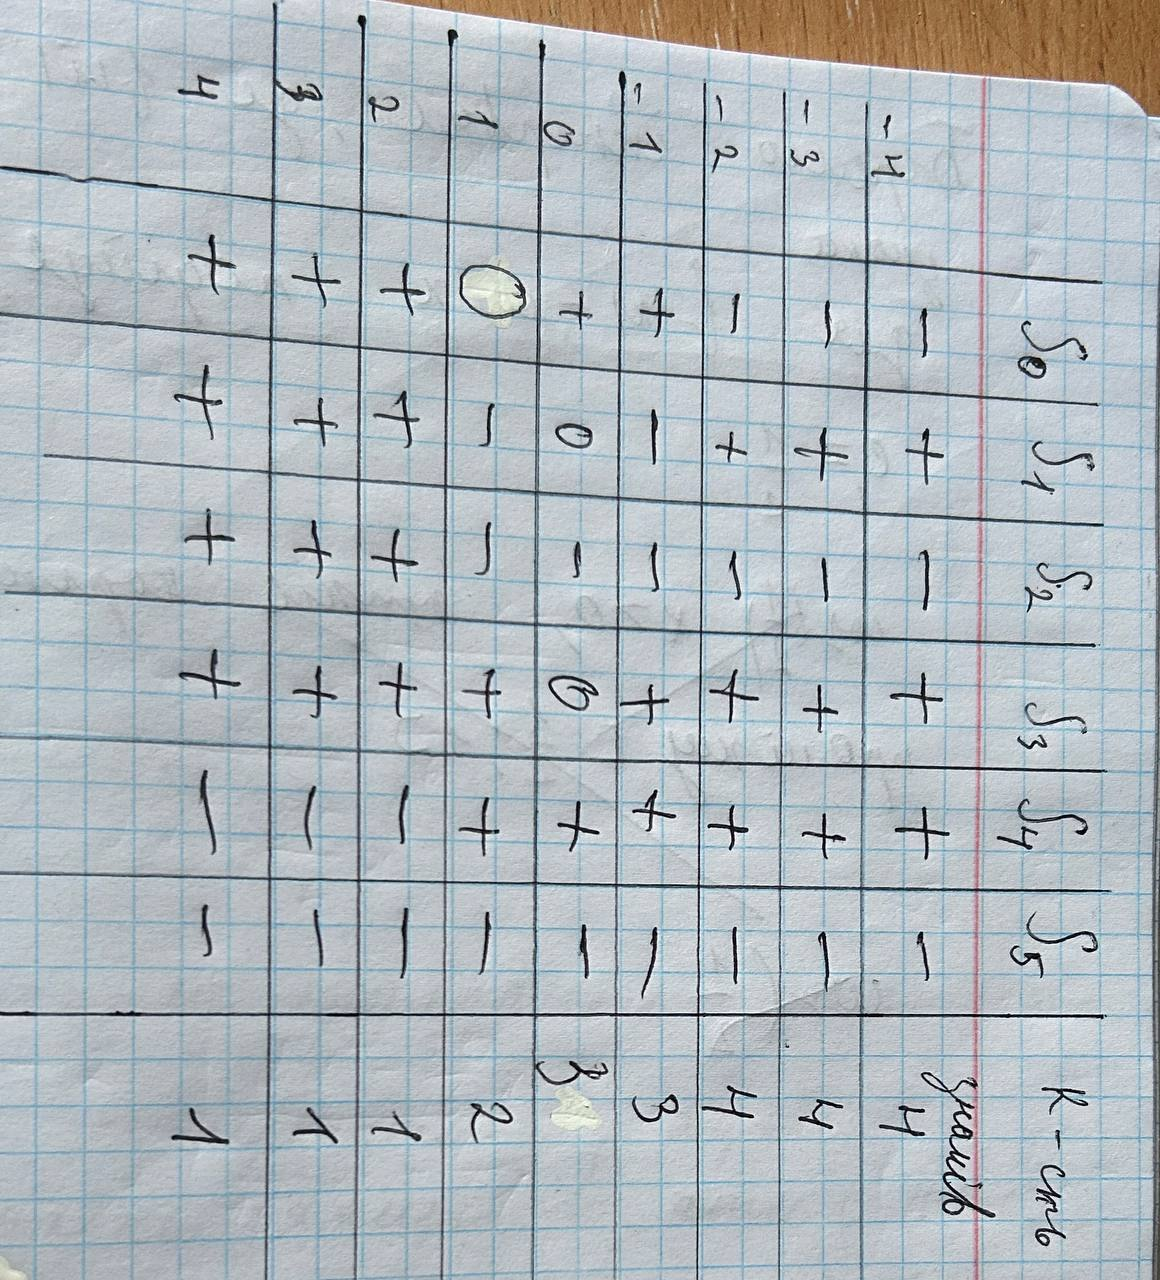 S0 S1 S2 S3 S4 S5 К-сть
знаків
-4 - + - + + - 4
-3 - + - + + - 4
-2 - + - + + - 4
-1 + - - + + - 3
0 + 0 - 0 + - 3
1 0 - - + + - 2
2 + + + + - - 1
3 + + + + - - 1
4 + + + + - - 1